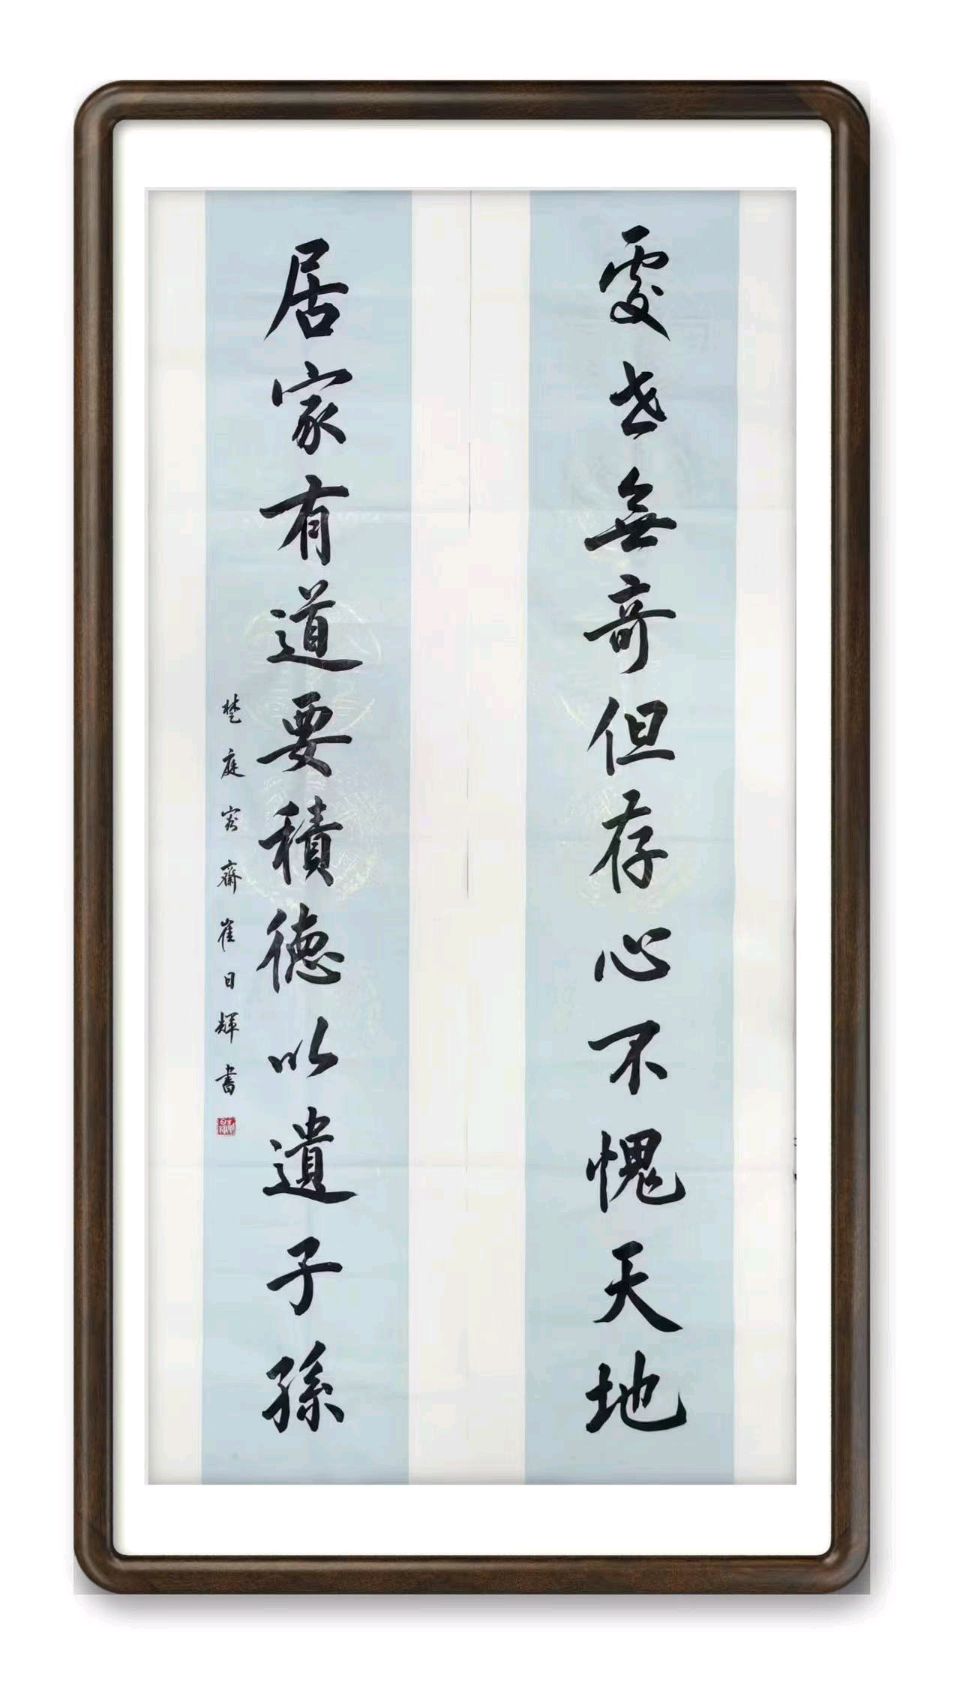 處世無奇但存心不愧天地
居家有道要積德以遺子孫
楚庭容齋崔日輝書